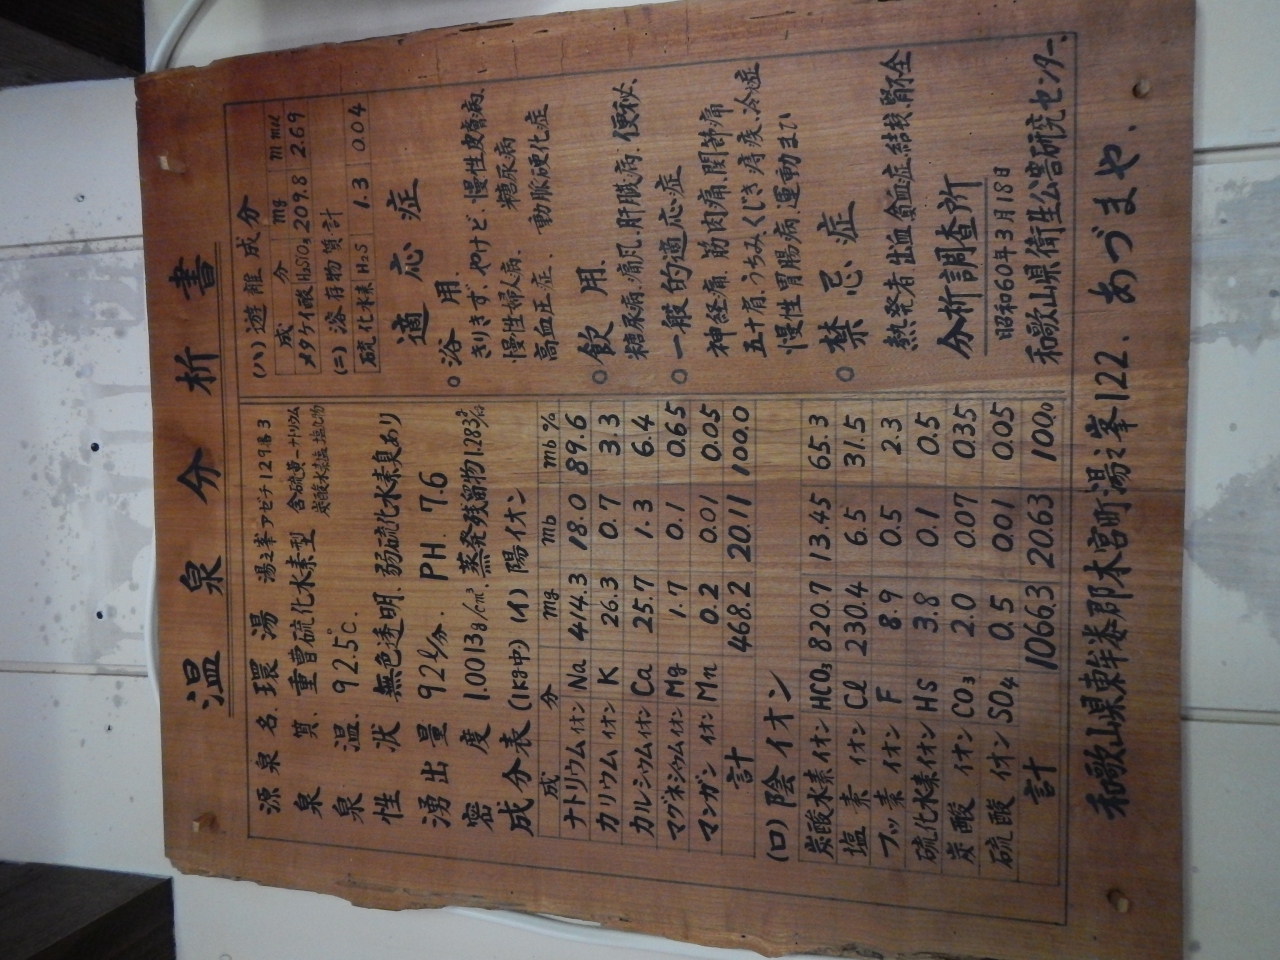 温泉分析書
源泉名 環湯 湯之峯アゼチ129番3
泉質 重曹硫化水素型 含硫黄ーナトリウム
炭酸水素塩塩化物
泉温 92.5℃.
性状 無色透明. 弱硫化水素臭あり
湧出量 92ℓ/分. PH 7.6
密度 1.0013g/cm³. 蒸発残留物1.283g/kg
成分表(1kg中) (イ) 陽イオン
成分 mg mb mb%
ナトリウムイオン Na 414.3 18.0 89.6
カリウムイオン K 26.3 0.7 3.3
カルシウムイオン Ca 25.7 1.3 6.4
マグネシウムイオン Mg 1.7 0.1 0.65
マンガンイオン Mn 0.2 0.01 0.05
計 468.2 20.11 100.0
(ロ) 陰イオン
炭酸水素イオン HCO₃ 820.7 13.45 65.3
塩素イオン Cl 230.4 6.5 31.5
フッ素イオン F 8.9 0.5 2.3
硫化水素イオン HS 3.8 0.1 0.5
炭酸イオン CO₃ 2.0 0.07 0.35
硫酸イオン SO₄ 0.5 0.01 0.05
計 1066.3 20.63 100.0
(ハ) 遊離成分
成分 mg m mol
メタケイ酸 H₂SiO₃ 209.8 2.69
(ニ) 溶存物質計
硫化水素 H₂S 1.3 0.04
適応症
○浴用.
きりきず、やけど、慢性皮膚病.
慢性婦人病. 糖尿病
高血圧症、動脈硬化症
○飲用.
糖尿病、痛風、肝臓病、便秘、
○一般的適応症
神経痛 筋肉痛 関節痛
五十肩、うちみ、くじき 痔疾、冷え症
慢性胃腸病、運動まひ
○禁忌症
熱発者、出血 貧血症、結核、腎不全
分析調査所
昭和60年3月18日
和歌山県衛生公害研究センター.
和歌山県東牟婁郡本宮町湯之峯122. あづまや.